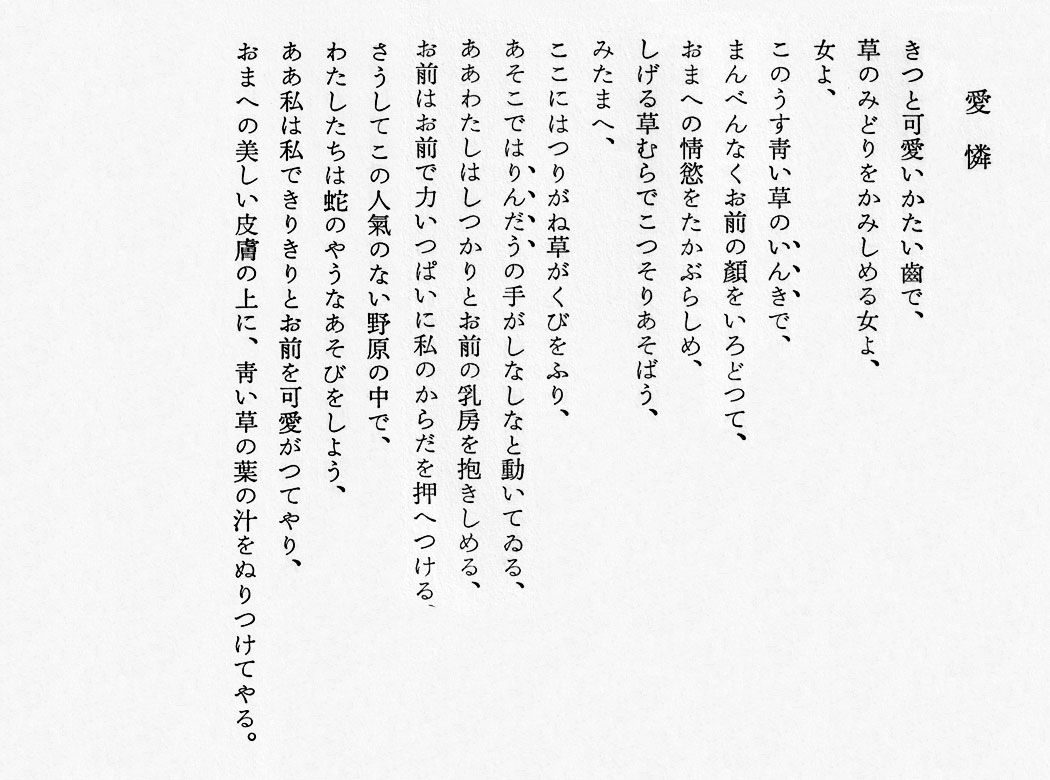 愛憐
きつと可愛いかたい齒で、
草のみどりをかみしめる女よ、
女よ、
このうす靑い草のいんきで、
まんべんなくお前の顏をいろどつて、
おまへの情慾をたかぶらしめ、
しげる草むらでこつそりあそばう、
みたまへ、
ここにはつりがね草がくびをふり、
あそこではりんだうの手がしなしなと動いてゐる、
ああわたしはしつかりとお前の乳房を抱きしめる、
お前はお前で力いつぱいに私のからだを押へつける、
さうしてこの人氣のない野原の中で、
わたしたちは蛇のやうなあそびをしよう、
ああ私は私できりきりとお前を可愛がつてやり、
おまへの美しい皮膚の上に、靑い草の葉の汁をぬりつけてやる。